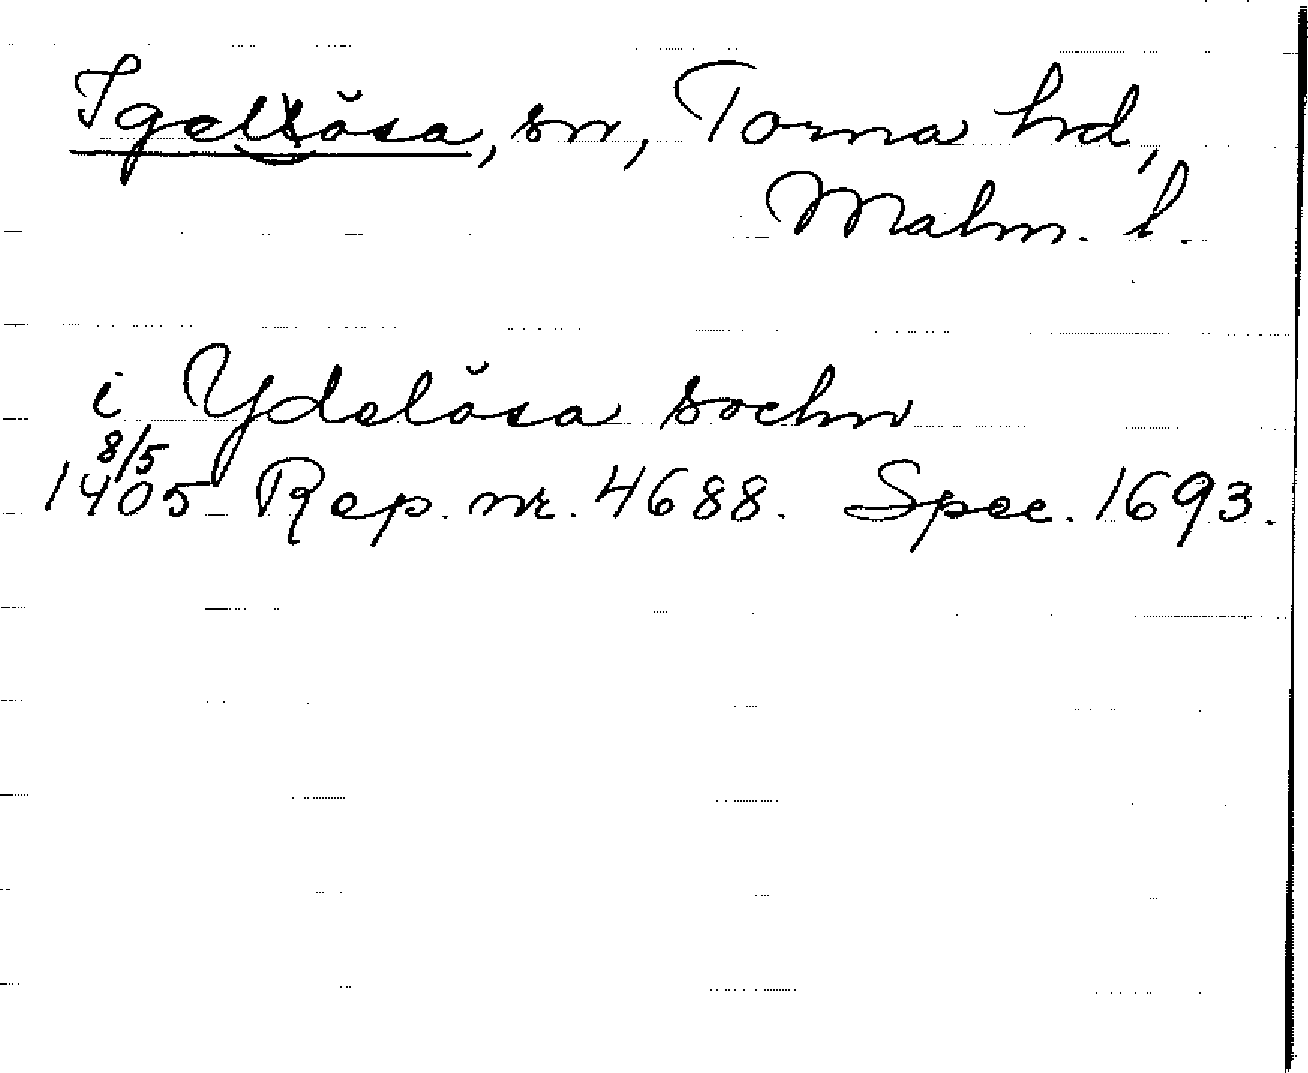 Igelösa, sn, Torna hd,
Malm. l.
i Ydelösa sochn
8/5
1405 Rep. nr. 4688. Spec. 1693.